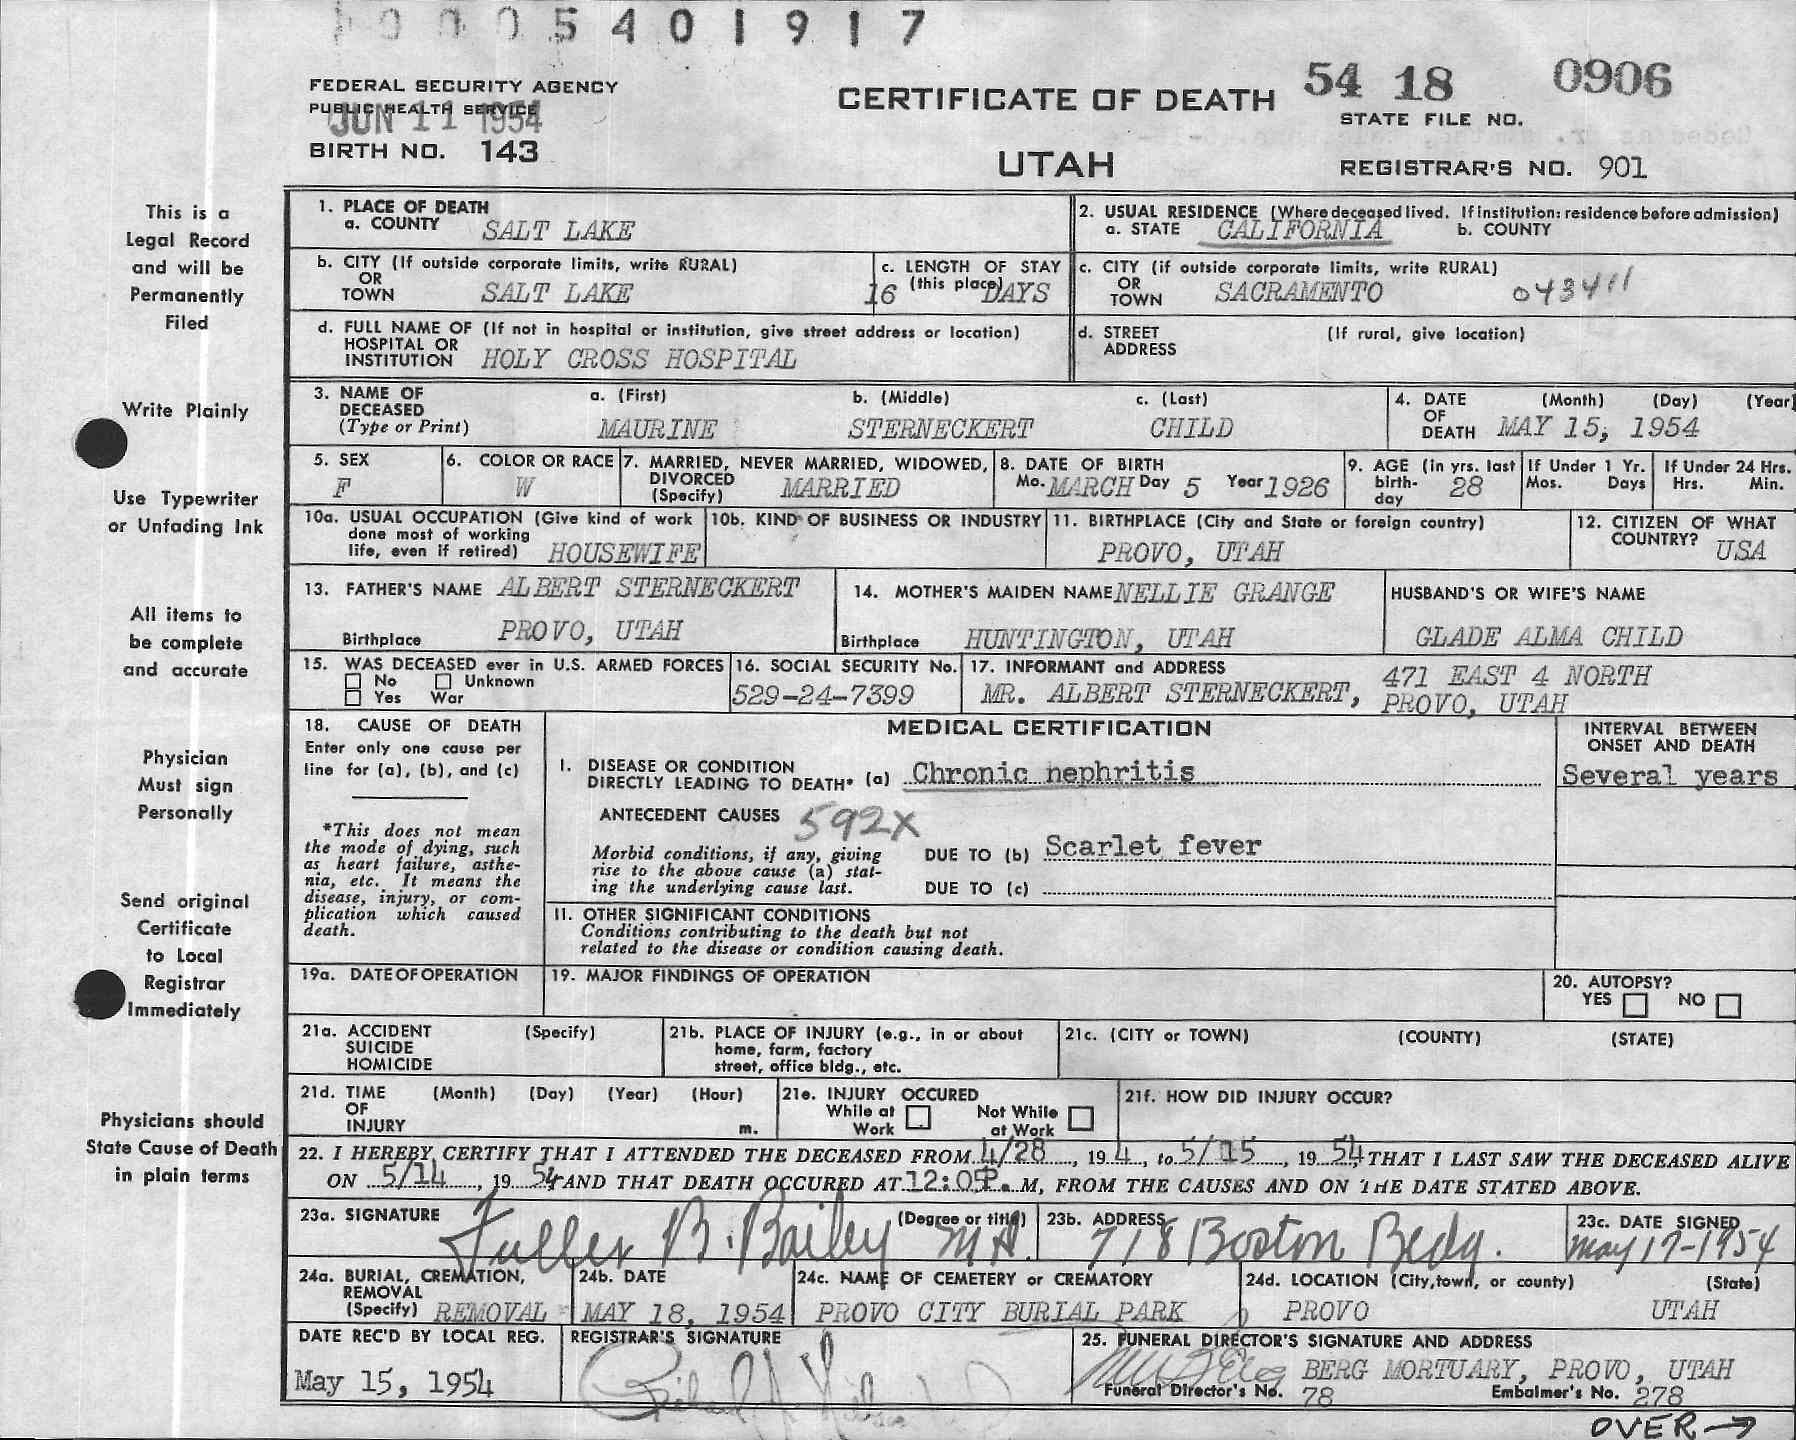 0005401917
FEDERAL SECURITY AGENCY
PUBLIC HEALTH SERVICE
JUN 11 1954
BIRTH NO. 143
CERTIFICATE OF DEATH
UTAH
54 18 0906
STATE FILE NO.
REGISTRAR'S NO. 901
This is a
Legal Record
and will be
Permanently
Filed
Write Plainly
Use Typewriter
or Unfading Ink
All items to
be complete
and accurate
Physician
Must sign
Personally
Send original
Certificate
to Local
Registrar
Immediately
Physicians should
State Cause of Death
in plain terms
1. PLACE OF DEATH
a. COUNTY SALT LAKE
2. USUAL RESIDENCE (Where deceased lived. If institution: residence before admission)
a. STATE CALIFORNIA b. COUNTY
b. CITY (If outside corporate limits, write RURAL)
OR
TOWN SALT LAKE
c. LENGTH OF STAY
(this place)
16 DAYS
c. CITY (if outside corporate limits, write RURAL)
OR
TOWN SACRAMENTO 043411
d. FULL NAME OF (If not in hospital or institution, give street address or location)
HOSPITAL OR
INSTITUTION HOLY CROSS HOSPITAL
d. STREET (If rural, give location)
ADDRESS
3. NAME OF a. (First) b. (Middle) c. (Last)
DECEASED
(Type or Print) MAURINE STERNECKERT CHILD
4. DATE (Month) (Day) (Year)
OF
DEATH MAY 15, 1954
5. SEX
F
6. COLOR OR RACE
W
7. MARRIED, NEVER MARRIED, WIDOWED,
DIVORCED
(Specify) MARRIED
8. DATE OF BIRTH
Mo. MARCH Day 5 Year 1926
9. AGE (in yrs. last
birth-
day 28
If Under 1 Yr.
Mos. Days
If Under 24 Hrs.
Hrs. Min.
10a. USUAL OCCUPATION (Give kind of work
done most of working
life, even if retired) HOUSEWIFE
10b. KIND OF BUSINESS OR INDUSTRY
11. BIRTHPLACE (City and State or foreign country)
PROVO, UTAH
12. CITIZEN OF WHAT
COUNTRY? USA
13. FATHER'S NAME ALBERT STERNECKERT
Birthplace PROVO, UTAH
14. MOTHER'S MAIDEN NAME NELLIE GRANGE
Birthplace HUNTINGTON, UTAH
HUSBAND'S OR WIFE'S NAME
GLADE ALMA CHILD
15. WAS DECEASED ever in U.S. ARMED FORCES
No Unknown
Yes War
16. SOCIAL SECURITY No.
529-24-7399
17. INFORMANT and ADDRESS 471 EAST 4 NORTH
MR. ALBERT STERNECKERT, PROVO, UTAH
18. CAUSE OF DEATH
Enter only one cause per
line for (a), (b), and (c)
*This does not mean
the mode of dying, such
as heart failure, asthe-
nia, etc. It means the
disease, injury, or com-
plication which caused
death.
MEDICAL CERTIFICATION
I. DISEASE OR CONDITION
DIRECTLY LEADING TO DEATH* (a) Chronic nephritis
ANTECEDENT CAUSES 592X
Morbid conditions, if any, giving
rise to the above cause (a) stat-
ing the underlying cause last.
DUE TO (b) Scarlet fever
DUE TO (c)
II. OTHER SIGNIFICANT CONDITIONS
Conditions contributing to the death but not
related to the disease or condition causing death.
INTERVAL BETWEEN
ONSET AND DEATH
Several years
19a. DATE OF OPERATION
19. MAJOR FINDINGS OF OPERATION
20. AUTOPSY?
YES NO
21a. ACCIDENT (Specify)
SUICIDE
HOMICIDE
21b. PLACE OF INJURY (e.g., in or about
home, farm, factory
street, office bldg., etc.
21c. (CITY or TOWN) (COUNTY) (STATE)
21d. TIME (Month) (Day) (Year) (Hour)
OF
INJURY m.
21e. INJURY OCCURED
While at Work Not While at Work
21f. HOW DID INJURY OCCUR?
22. I HEREBY CERTIFY THAT I ATTENDED THE DECEASED FROM 4/28, 19 4, to 5/15, 19 54, THAT I LAST SAW THE DECEASED ALIVE
ON 5/14, 19 54 AND THAT DEATH OCCURED AT 12:05P. M, FROM THE CAUSES AND ON THE DATE STATED ABOVE.
23a. SIGNATURE (Degree or title)
Fuller B. Bailey MD.
23b. ADDRESS
718 Boston Bldg.
23c. DATE SIGNED
May 17-1954
24a. BURIAL, CREMATION,
REMOVAL
(Specify) REMOVAL
24b. DATE
MAY 18, 1954
24c. NAME OF CEMETERY or CREMATORY
PROVO CITY BURIAL PARK
24d. LOCATION (City, town, or county) (State)
PROVO UTAH
DATE REC'D BY LOCAL REG.
May 15, 1954
REGISTRAR'S SIGNATURE
25. FUNERAL DIRECTOR'S SIGNATURE AND ADDRESS
BERG MORTUARY, PROVO, UTAH
Funeral Director's No. 78 Embalmer's No. 278
OVER →